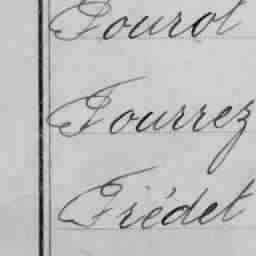 Fourot
Fourrez
Frédet